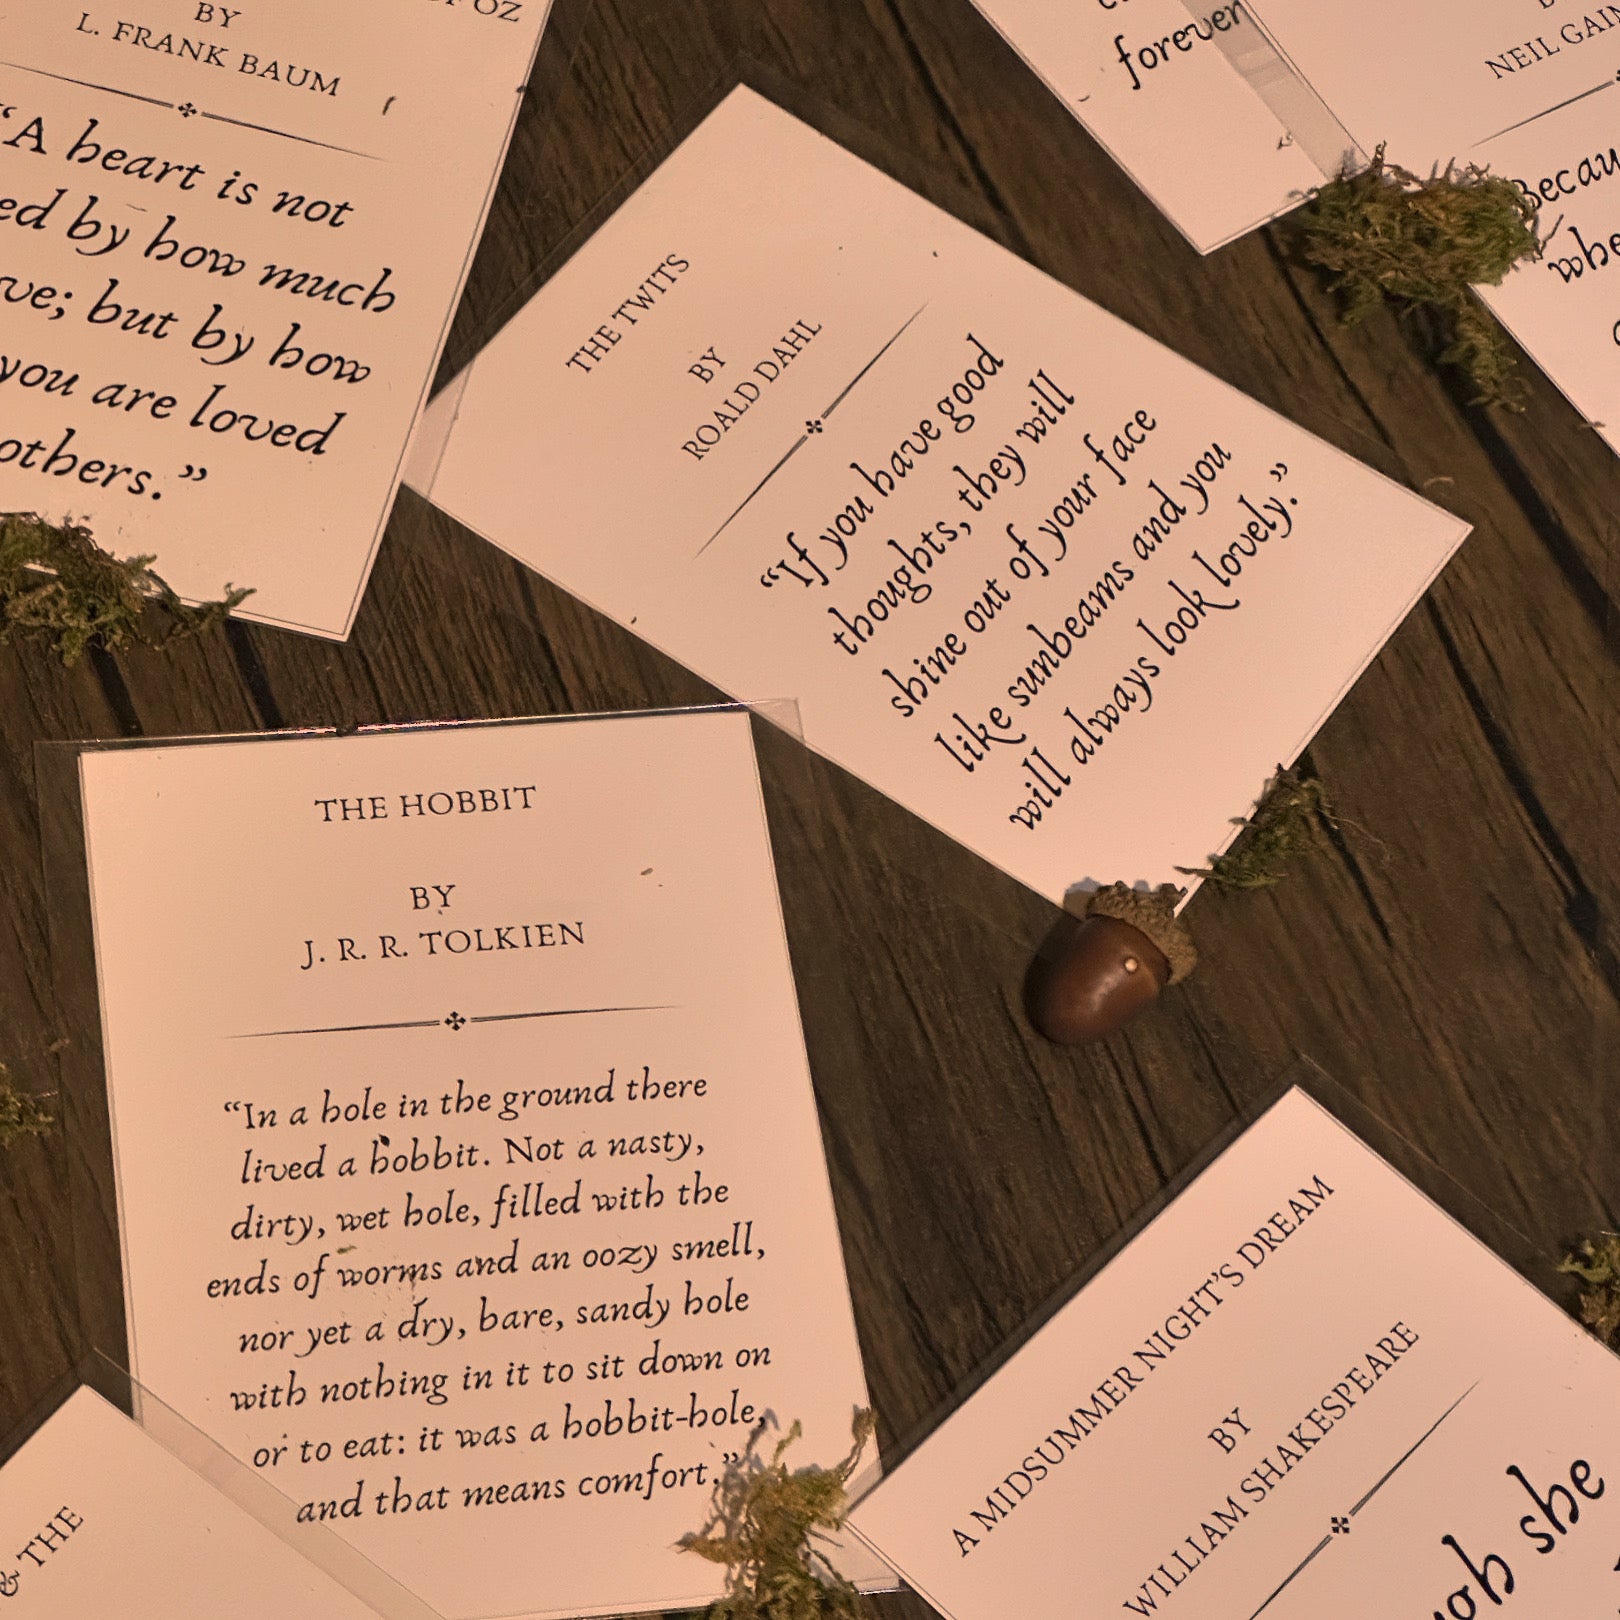 OZ
BY
L. FRANK BAUM
“A heart is not
by how much
but by how
you are loved
others.”
forever
NEIL
THE TWITS
BY
ROALD DAHL
“If you have good
thoughts, they will
shine out of your face
like sunbeams and you
will always look lovely.”
THE HOBBIT
BY
J. R. R. TOLKIEN
“In a hole in the ground there
lived a hobbit. Not a nasty,
dirty, wet hole, filled with the
ends of worms and an oozy smell,
nor yet a dry, bare, sandy hole
with nothing in it to sit down on
or to eat: it was a hobbit-hole,
and that means comfort.”
A MIDSUMMER NIGHT’S DREAM
BY
WILLIAM SHAKESPEARE
she
& THE